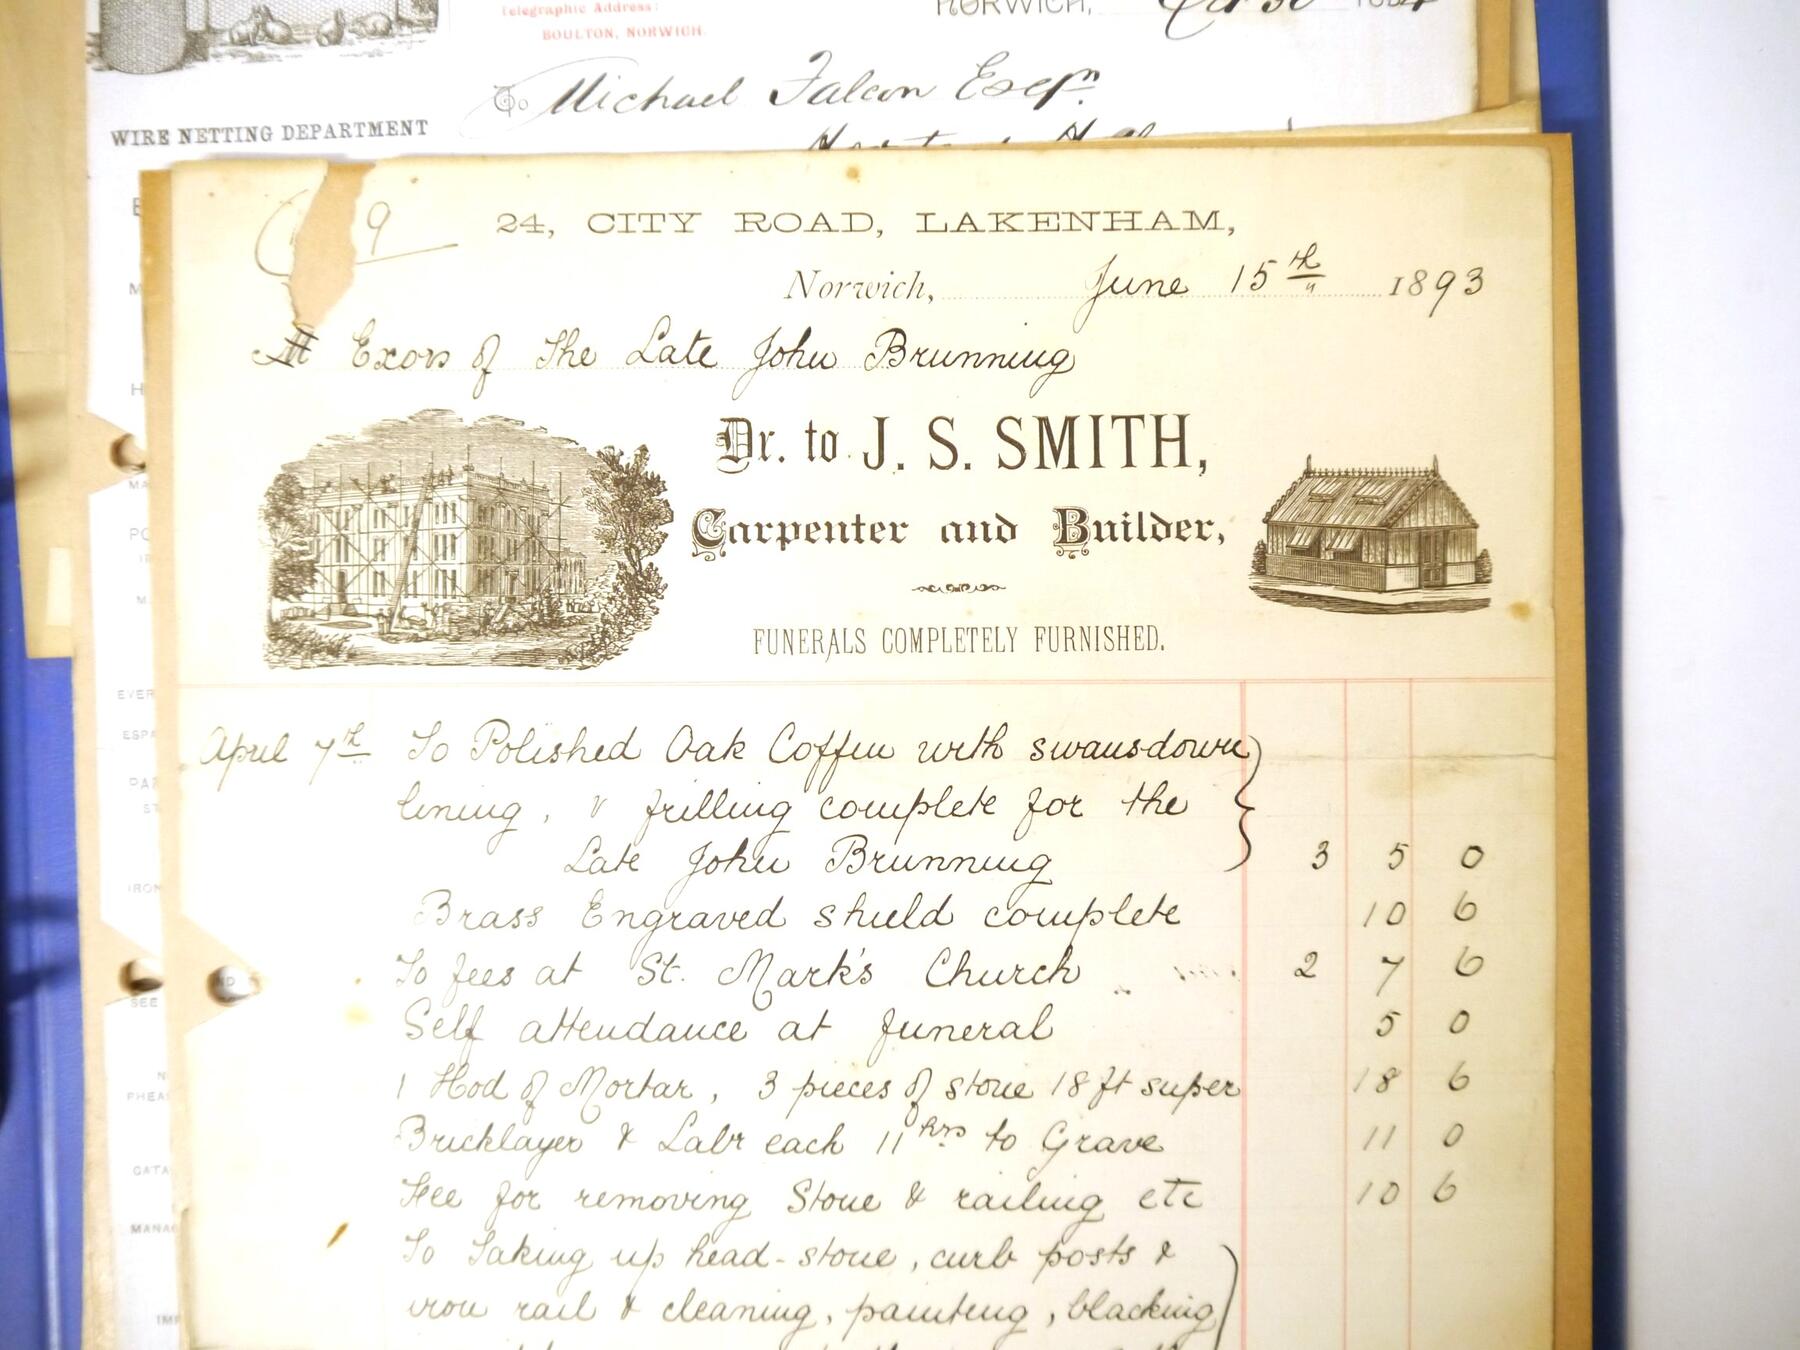 Telegraphic Address:
BOULTON, NORWICH.
NORWICH, Oct 30 1884
To Michael Falcon Esqr.
WIRE NETTING DEPARTMENT
9
24, CITY ROAD, LAKENHAM,
Norwich, June 15th 1893
M Exors of The Late John Brunning
Dr. to J. S. SMITH,
Carpenter and Builder,
FUNERALS COMPLETELY FURNISHED.
April 7th To Polished Oak Coffin with swansdown
lining, & frilling complete for the
Late John Brunning 3 5 0
Brass Engraved shield complete 10 6
To fees at St. Mark's Church 2 7 6
Self attendance at funeral 5 0
1 Hod of Mortar, 3 pieces of stone 18 ft super 18 6
Bricklayer & Labr each 11 hrs to Grave 11 0
Fee for removing Stone & railing etc 10 6
To Taking up head-stone, curb posts &
iron rail & cleaning, painting, blacking